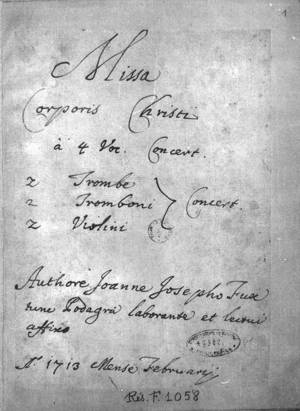 1
Missa
Corporis Christi
à 4 Voc. Concert.
2 Trombe
2 Tromboni } Concert.
2 Violini
Authore Joanne Josepho Fux
tunc Podagrâ laborante et lectui
affixo
Aº 1713 Mense Februarij
Rés. F. 1058